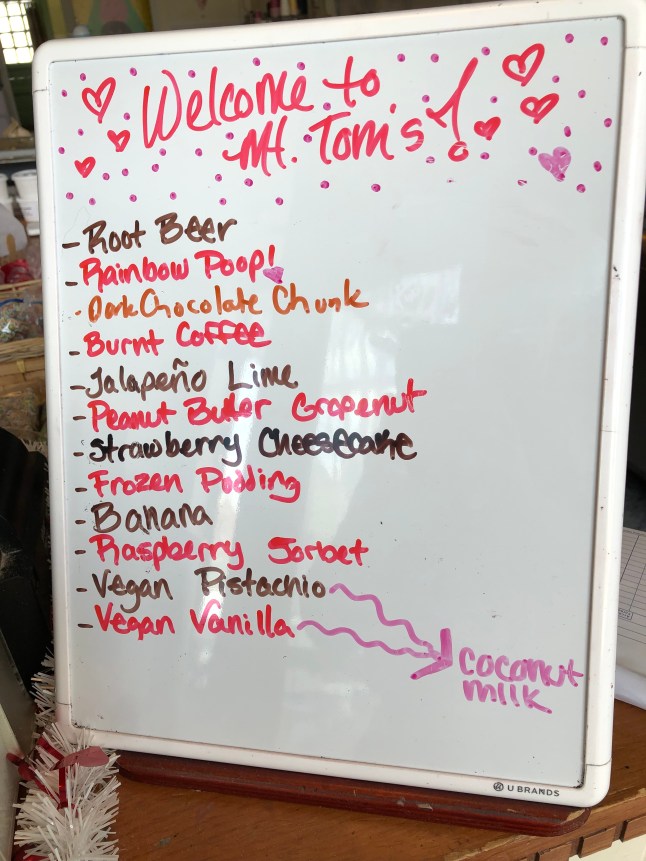 Welcome to
Mt. Tom's!
- Root Beer
- Rainbow Poop!
- Dark Chocolate Chunk
- Burnt Coffee
- Jalapeño Lime
- Peanut Butter Grapenut
- Strawberry Cheesecake
- Frozen Pudding
- Banana
- Raspberry Sorbet
- Vegan Pistachio
- Vegan Vanilla
coconut
milk
U BRANDS